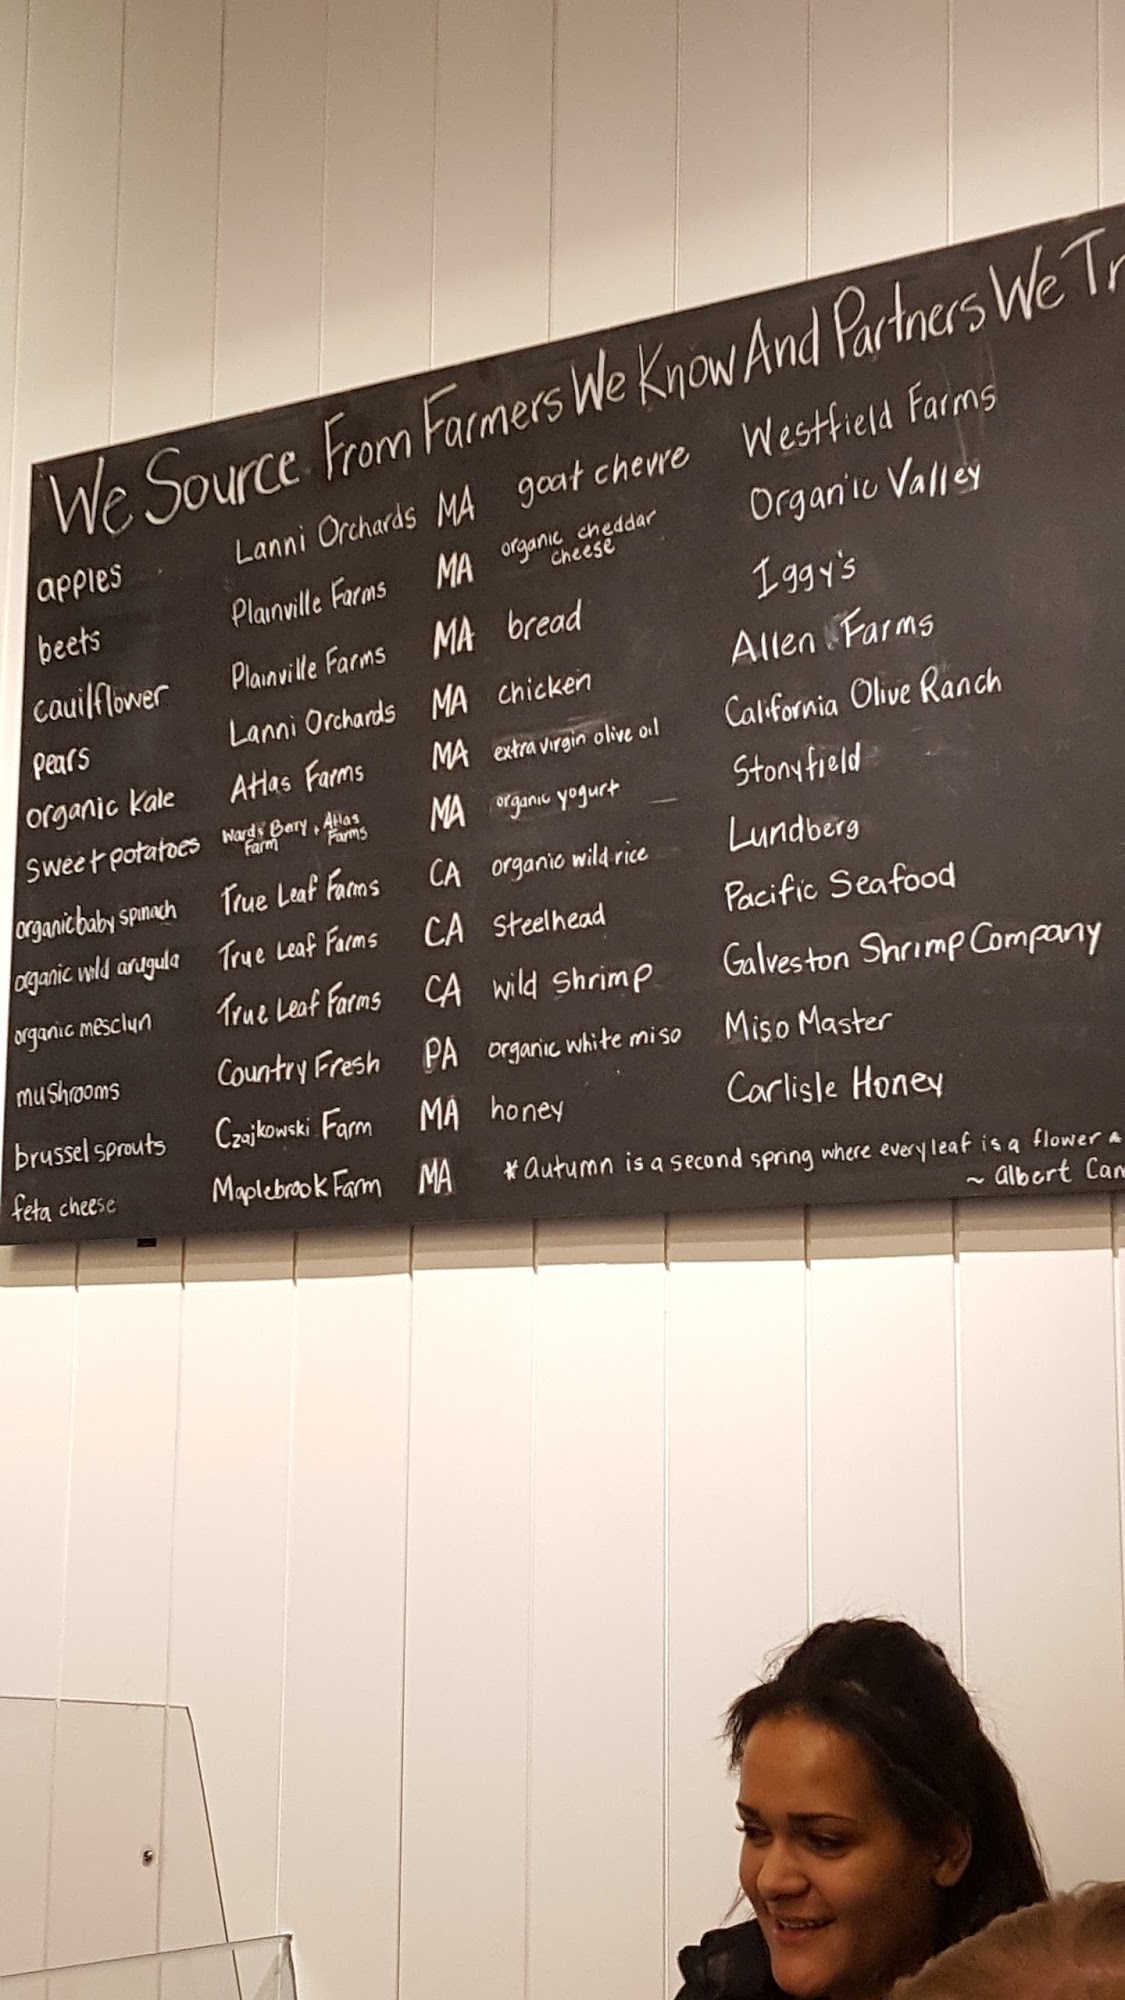 We Source From Farmers We Know And Partners We Tr
apples Lanni Orchards MA goat chevre Westfield Farms
beets Plainville Farms MA organic cheddar cheese Organic Valley
cauilflower Plainville Farms MA bread Iggy's
pears Lanni Orchards MA chicken Allen Farms
organic kale Atlas Farms MA extra virgin olive oil California Olive Ranch
sweet potatoes Ward's Berry Farm + Atlas Farms MA organic yogurt Stonyfield
organic baby spinach True Leaf Farms CA organic wild rice Lundberg
organic wild arugula True Leaf Farms CA Steelhead Pacific Seafood
organic mesclun True Leaf Farms CA wild Shrimp Galveston Shrimp Company
mushrooms Country Fresh PA organic white miso Miso Master
brussel sprouts Czajkowski Farm MA honey Carlisle Honey
feta cheese Maplebrook Farm MA * Autumn is a second spring where every leaf is a flower
~ Albert Cam